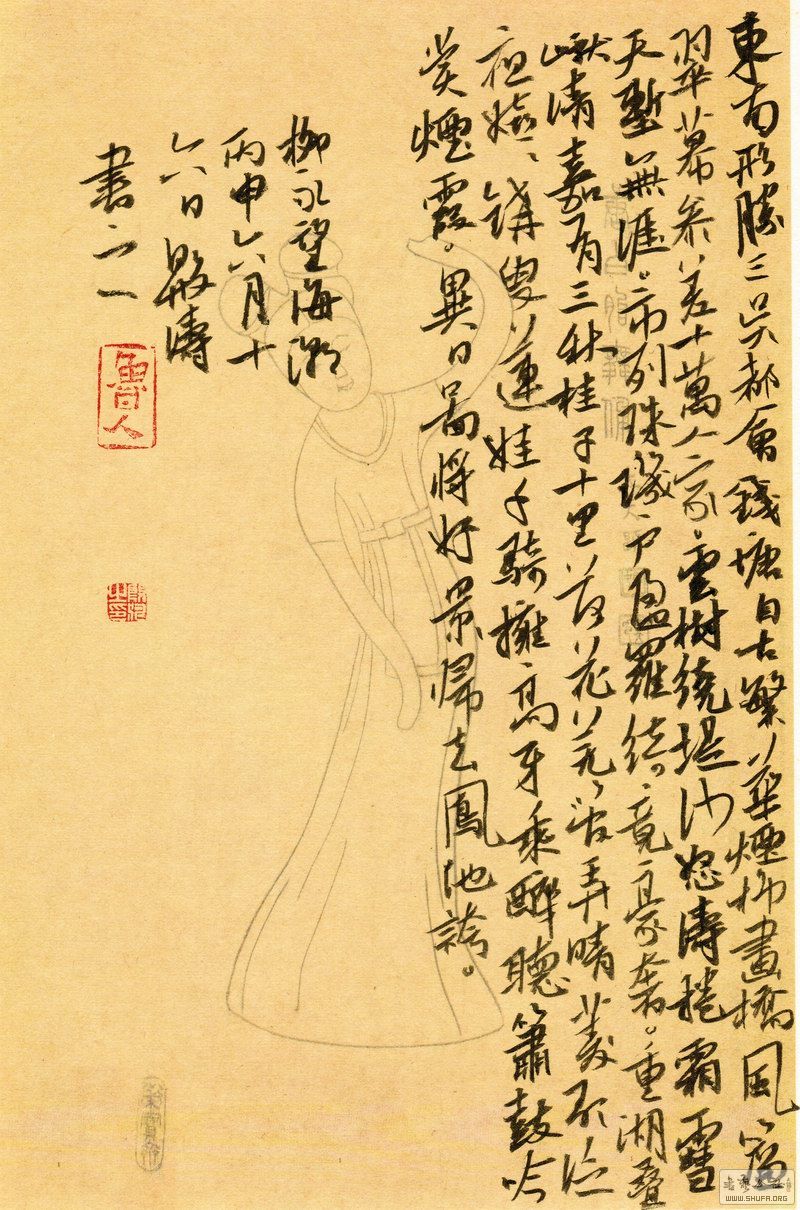 東南形勝三吳都會錢塘自古繁華煙柳畫橋風簾
翠幕參差十萬人家。雲樹繞堤沙怒濤捲霜雪
天塹無涯。市列珠璣戶盈羅綺。竟豪奢。重湖疊
巘清嘉有三秋桂子十里荷花羌管弄晴菱歌泛
夜嬉〻釣叟蓮娃千騎擁高牙乘醉聽簫鼓吟
賞煙霞。異日圖將好景歸去鳳池誇。
柳永望海潮
丙申六月十
六日殷濤
書之一
魯人
WWW.SHUFA.ORG